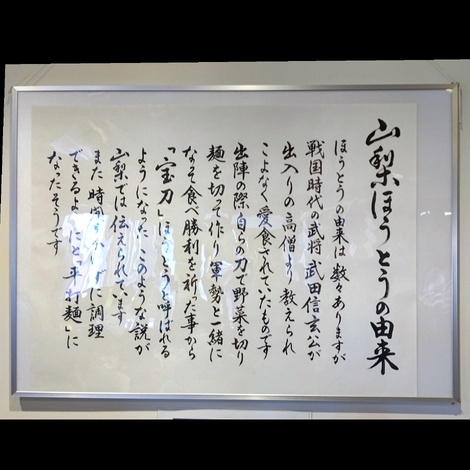 山梨ほうとうの由来
ほうとうの由来は数々ありますが
戦国時代の武将 武田信玄公が
出入りの高僧より教えられ
こよなく愛食されていたものです
出陣の際 自らの刀で野菜を切り
麺を切って作り軍勢と一緒に
なって食べ勝利を祈った事から
「宝刀」ほうとうと呼ばれる
ようになった このような説が
山梨では伝えられてます
また 時間をかけずに調理
できるように と平打麺」に
なったそうです